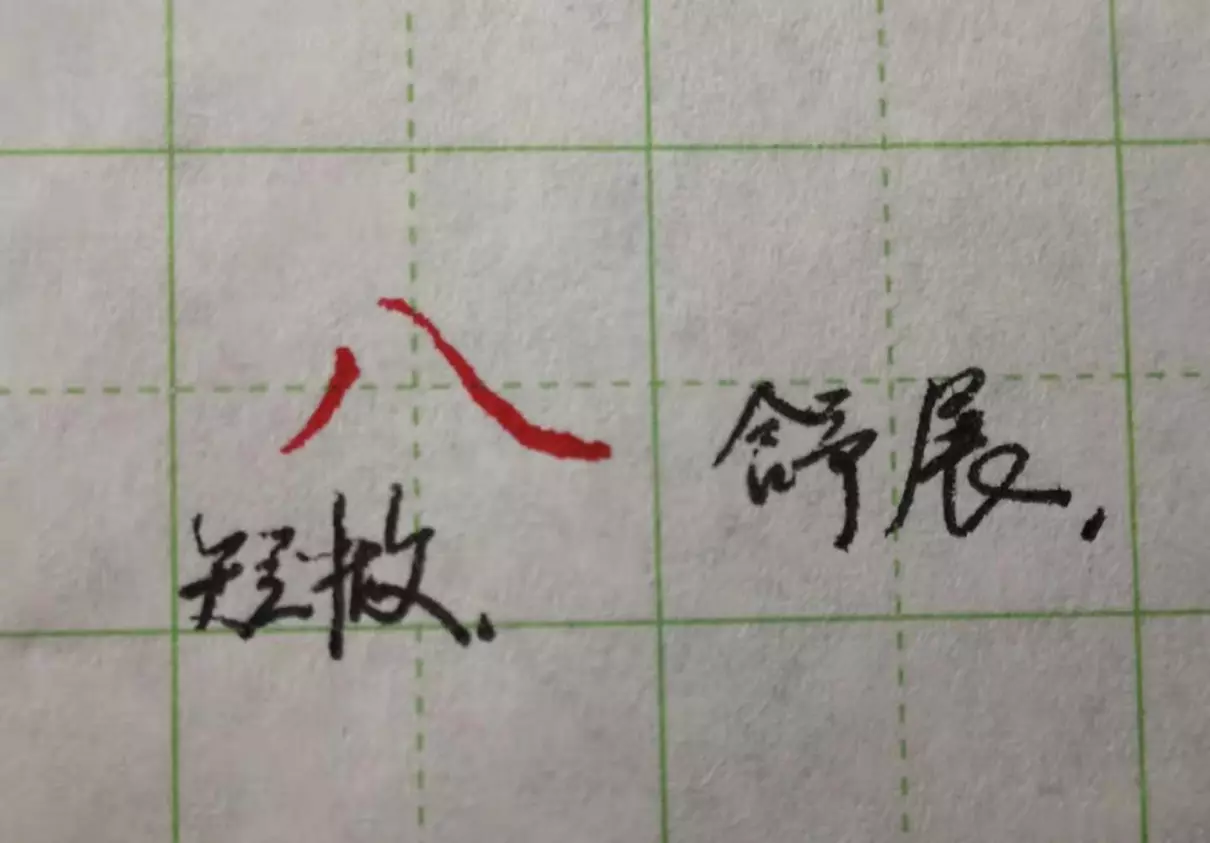 八
舒展.
短撇.